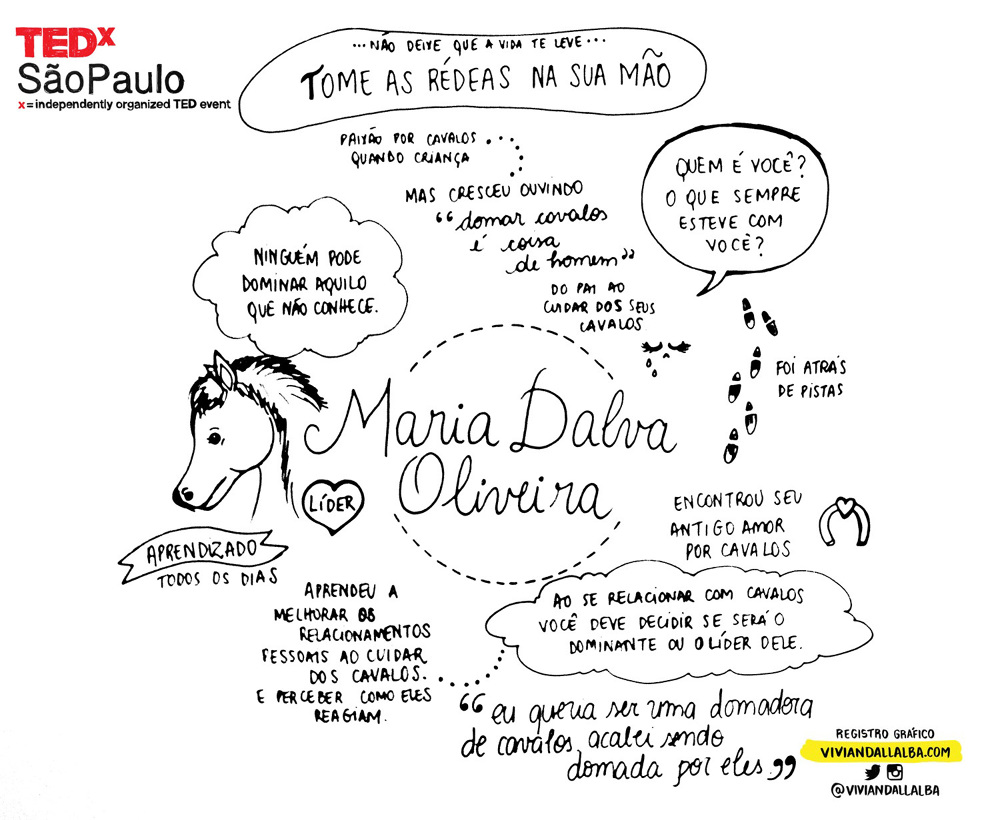 TEDx
SãoPaulo
x = independently organized TED event
...NÃO DEIXE QUE A VIDA TE LEVE...
TOME AS RÉDEAS NA SUA MÃO
PAIXÃO POR CAVALOS
QUANDO CRIANÇA
MAS CRESCEU OUVINDO
“domar cavalos
é coisa
de homem”
DO PAI AO
CUIDAR DOS SEUS
CAVALOS
QUEM É VOCÊ?
O QUE SEMPRE
ESTEVE COM
VOCÊ?
NINGUÉM PODE
DOMINAR AQUILO
QUE NÃO CONHECE.
FOI ATRÁS
DE PISTAS
Maria Dalva
Oliveira
LÍDER
APRENDIZADO
TODOS OS DIAS
ENCONTROU SEU
ANTIGO AMOR
POR CAVALOS
APRENDEU A
MELHORAR OS
RELACIONAMENTOS
PESSOAIS AO CUIDAR
DOS CAVALOS.
E PERCEBER COMO ELES
REAGIAM.
AO SE RELACIONAR COM CAVALOS
VOCÊ DEVE DECIDIR SE SERÁ O
DOMINANTE OU O LÍDER DELE.
“eu queria ser uma domadora
de cavalos, acabei sendo
domada por eles.”
REGISTRO GRÁFICO
VIVIANDALLALBA.COM
@VIVIANDALLALBA